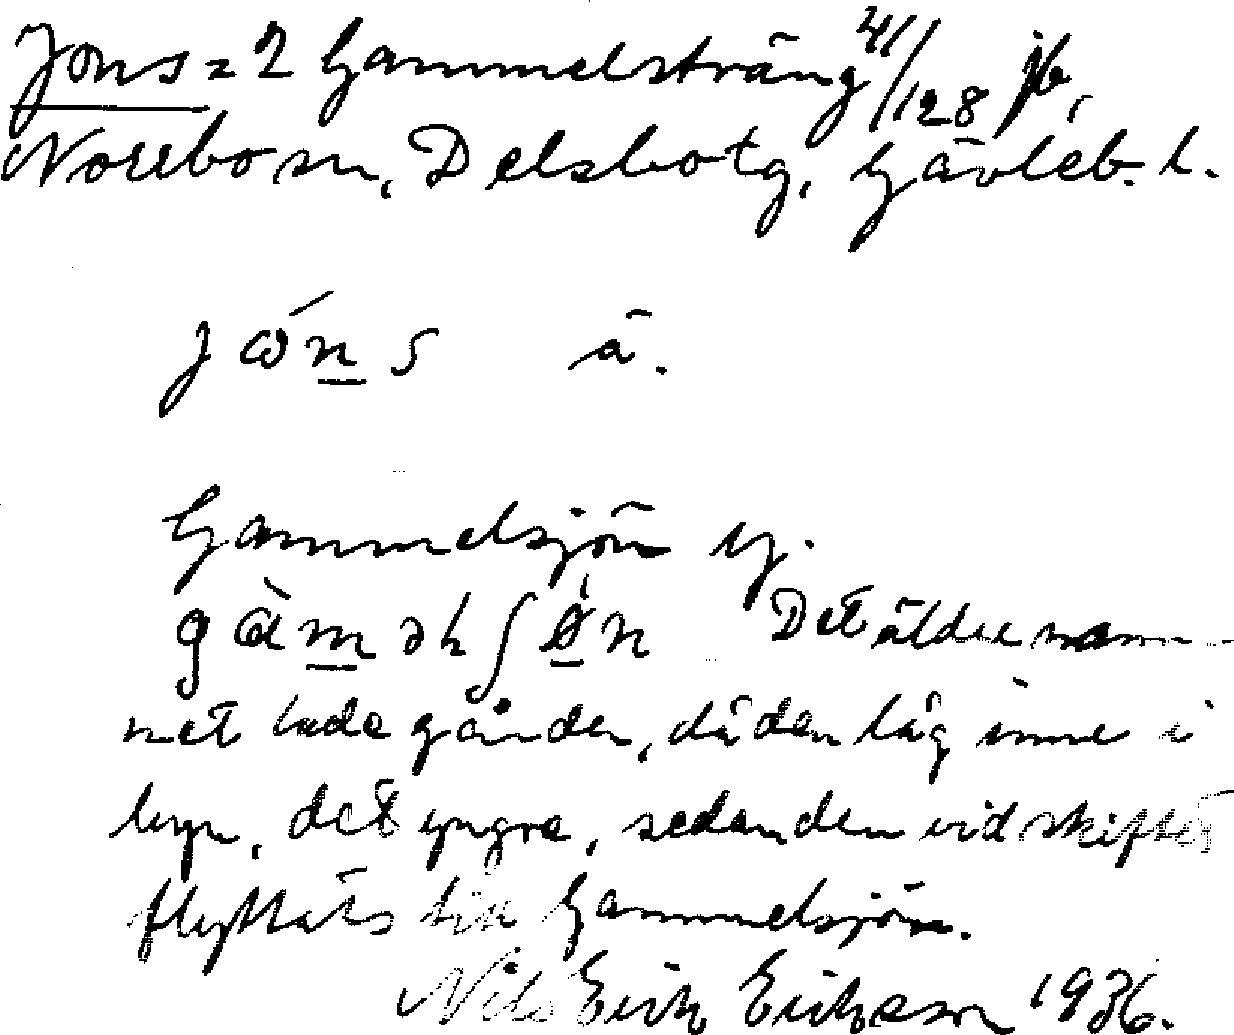 Jons = 2 Gammelsträng 41/128 jb,
Norrbo sn, Delsbo tg, Gävleb. l.
jωńs ä.
Gammelsjön y.
gàməlʃǿn Det äldre nam-
net hade gården, då den låg inne i
byn, det yngre, sedan den vid skiftet
flyttats till Gammelsjön.
Nils Erik Erikson 1936.